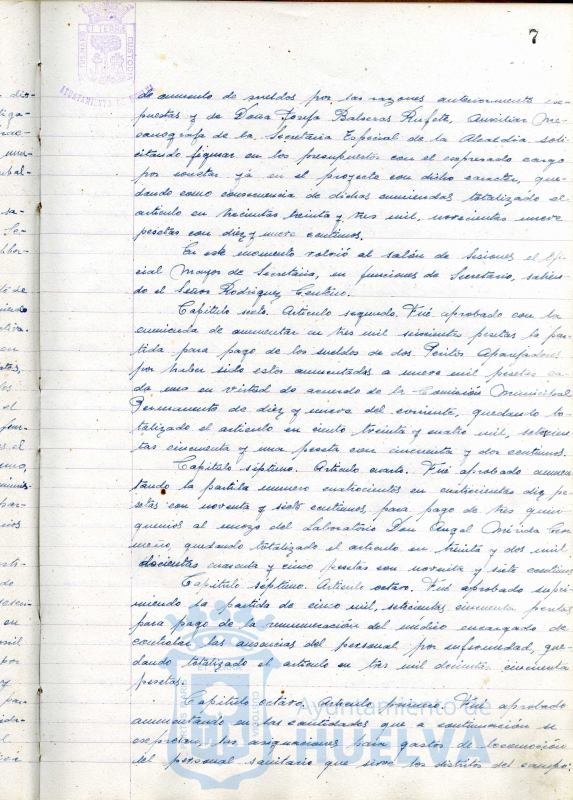 7
de aumento de sueldos por las razones anteriormente ex-
puestas y de Doña Josefa Balseras Rufete, Auxiliar Me-
canógrafa de la Secretaría Especial de la Alcaldía soli-
citando figurar en los presupuestos con el expresado cargo
por constar ya en el proyecto con dicho caracter, que-
dando como consecuencia de dichas enmiendas totalizado el
artículo en trescientas treinta y tres mil, novecientas nueve
pesetas con diez y nueve centimos.
En este momento volvió al salón de Sesiones el Ofi-
cial Mayor de Secretaría, en funciones de Secretario, salien-
do el Señor Rodriguez
Capitulo sexto. Articulo segundo. Fué aprobado con la
enmienda de aumentar en tres mil pesetas la par-
tida para pago de los sueldos de dos Peritos Aparejadores
por haber sido estos aumentados a nueve mil pesetas ca-
da uno en virtud de acuerdo de la Comisión Municipal
Permanente de diez y nueve del corriente, quedando to-
talizado el articulo en ciento treinta y cuatro mil,
tas cincuenta y una peseta con cincuenta y dos centimos.
Capitulo séptimo. Articulo cuarto. Fué aprobado aumen-
tando la partida numero cuatrocientos en cuatrocientas diez pe-
setas con noventa y siete centimos, para pago de tres quin-
quenios al mozo del Laboratorio Don Angel
quedando totalizado el articulo en treinta y dos mil
doscientas cuarenta y cinco pesetas con noventa y siete centimos
Capitulo séptimo. Articulo octavo. Fué aprobado supri-
miendo la partida de cinco mil, setecientas cincuenta pesetas
para pago de la remuneración del médico encargado de
controlar las ausencias del personal por enfermedad, que-
dando totalizado el articulo en tres mil doscientas cincuenta
pesetas.
Capitulo octavo. Articulo primero. Fué aprobado
aumentando en las cantidades que a continuación se
expresan, las asignaciones para gastos de locomoción
del personal sanitario que sirve los distritos del campo:
Ayuntamiento de
HUELVA